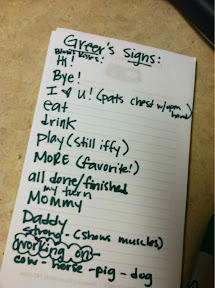 Greer's Signs:
Blows Kisses:
Hi!
Bye!
I ♥ U! (pats chest w/open hand)
eat
drink
play (still iffy)
MORE (favorite!)
all done/finished
my turn
Mommy
Daddy
strong - (shows muscles)
working on -
cow - horse - pig - dog